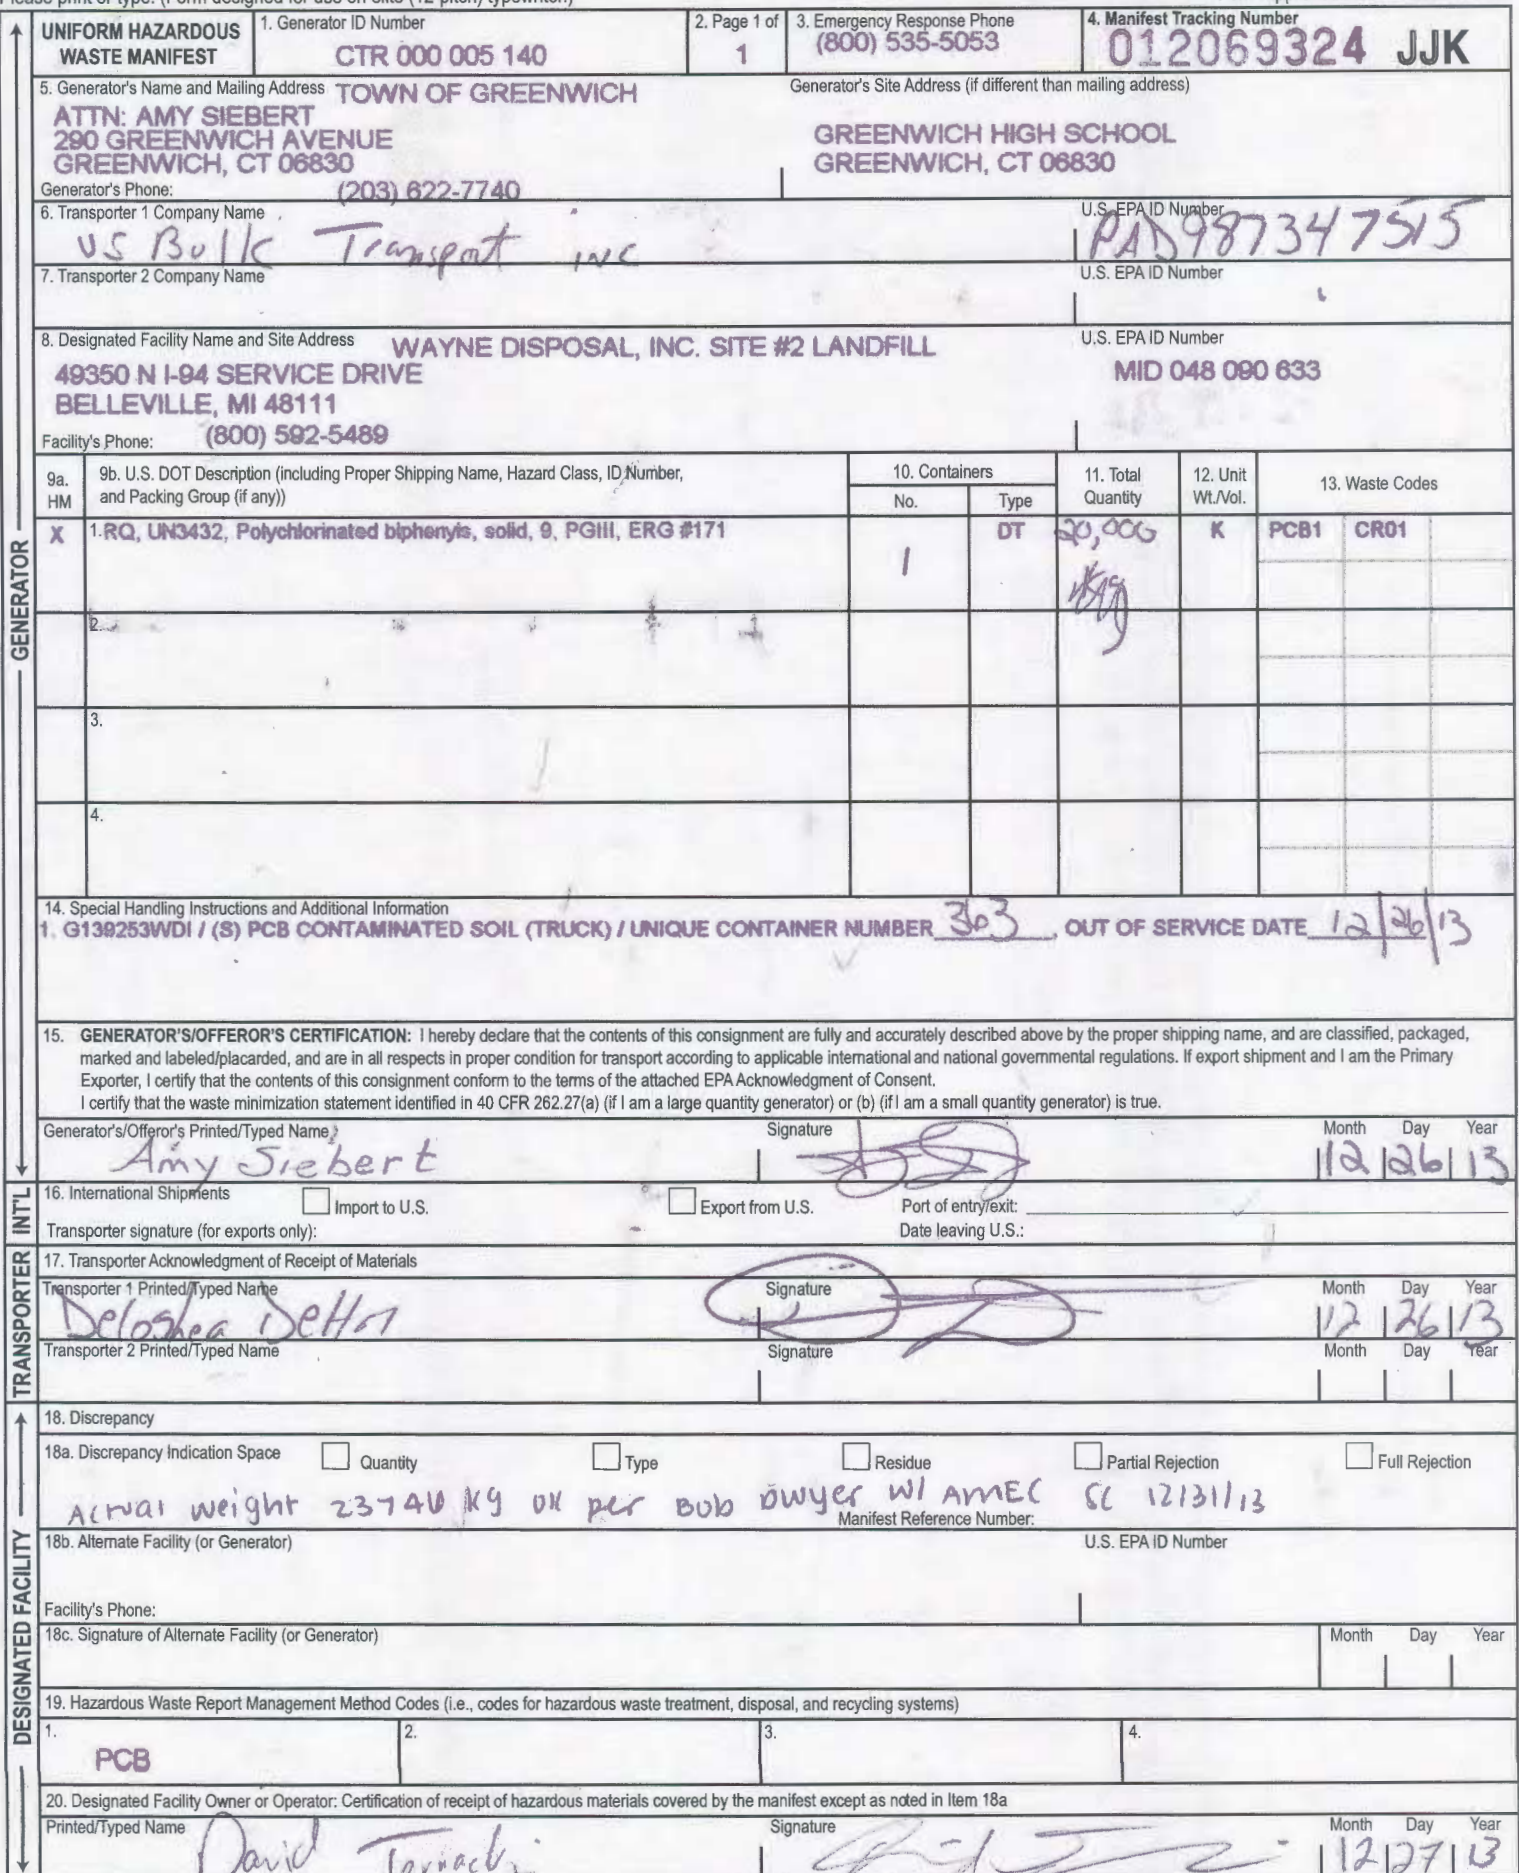 Please print or type. (Form designed for use on elite (12-pitch) typewriter.)
UNIFORM HAZARDOUS WASTE MANIFEST
1. Generator ID Number
CTR 000 005 140
2. Page 1 of
1
3. Emergency Response Phone
(800) 535-5053
4. Manifest Tracking Number
012069324 JJK
5. Generator's Name and Mailing Address TOWN OF GREENWICH
ATTN: AMY SIEBERT
290 GREENWICH AVENUE
GREENWICH, CT 06830
Generator's Phone: (203) 622-7740
Generator's Site Address (if different than mailing address)
GREENWICH HIGH SCHOOL
GREENWICH, CT 06830
6. Transporter 1 Company Name
US Bulk Transport INC
U.S. EPA ID Number
PAD987347515
7. Transporter 2 Company Name
U.S. EPA ID Number
8. Designated Facility Name and Site Address WAYNE DISPOSAL, INC. SITE #2 LANDFILL
49350 N I-94 SERVICE DRIVE
BELLEVILLE, MI 48111
Facility's Phone: (800) 592-5489
U.S. EPA ID Number
MID 048 090 633
9a. HM
9b. U.S. DOT Description (including Proper Shipping Name, Hazard Class, ID Number, and Packing Group (if any))
10. Containers
No.
Type
11. Total Quantity
12. Unit Wt./Vol.
13. Waste Codes
X 1. RQ, UN3432, Polychlorinated biphenyls, solid, 9, PGIII, ERG #171
1 DT 20,000 K PCB1 CR01
2.
3.
4.
14. Special Handling Instructions and Additional Information
1. G139253WDI / (S) PCB CONTAMINATED SOIL (TRUCK) / UNIQUE CONTAINER NUMBER 363 OUT OF SERVICE DATE 12/26/13
15. GENERATOR'S/OFFEROR'S CERTIFICATION: I hereby declare that the contents of this consignment are fully and accurately described above by the proper shipping name, and are classified, packaged,
marked and labeled/placarded, and are in all respects in proper condition for transport according to applicable international and national governmental regulations. If export shipment and I am the Primary
Exporter, I certify that the contents of this consignment conform to the terms of the attached EPA Acknowledgment of Consent.
I certify that the waste minimization statement identified in 40 CFR 262.27(a) (if I am a large quantity generator) or (b) (if I am a small quantity generator) is true.
Generator's/Offeror's Printed/Typed Name
Amy Siebert
Signature
Month Day Year
12 26 13
16. International Shipments
Import to U.S.
Export from U.S.
Port of entry/exit:
Transporter signature (for exports only):
Date leaving U.S.:
17. Transporter Acknowledgment of Receipt of Materials
Transporter 1 Printed/Typed Name
Signature
Month Day Year
12 26 13
Transporter 2 Printed/Typed Name
Signature
Month Day Year
18. Discrepancy
18a. Discrepancy Indication Space
Quantity
Type
Residue
Partial Rejection
Full Rejection
Actual weight 23740 kg OK per Bob Dwyer w/ AMEC SC 12/31/13
Manifest Reference Number:
18b. Alternate Facility (or Generator)
U.S. EPA ID Number
Facility's Phone:
18c. Signature of Alternate Facility (or Generator)
Month Day Year
19. Hazardous Waste Report Management Method Codes (i.e., codes for hazardous waste treatment, disposal, and recycling systems)
1. PCB
2.
3.
4.
20. Designated Facility Owner or Operator: Certification of receipt of hazardous materials covered by the manifest except as noted in Item 18a
Printed/Typed Name
David
Signature
Month Day Year
12 27 13
GENERATOR
INT'L
TRANSPORTER
DESIGNATED FACILITY